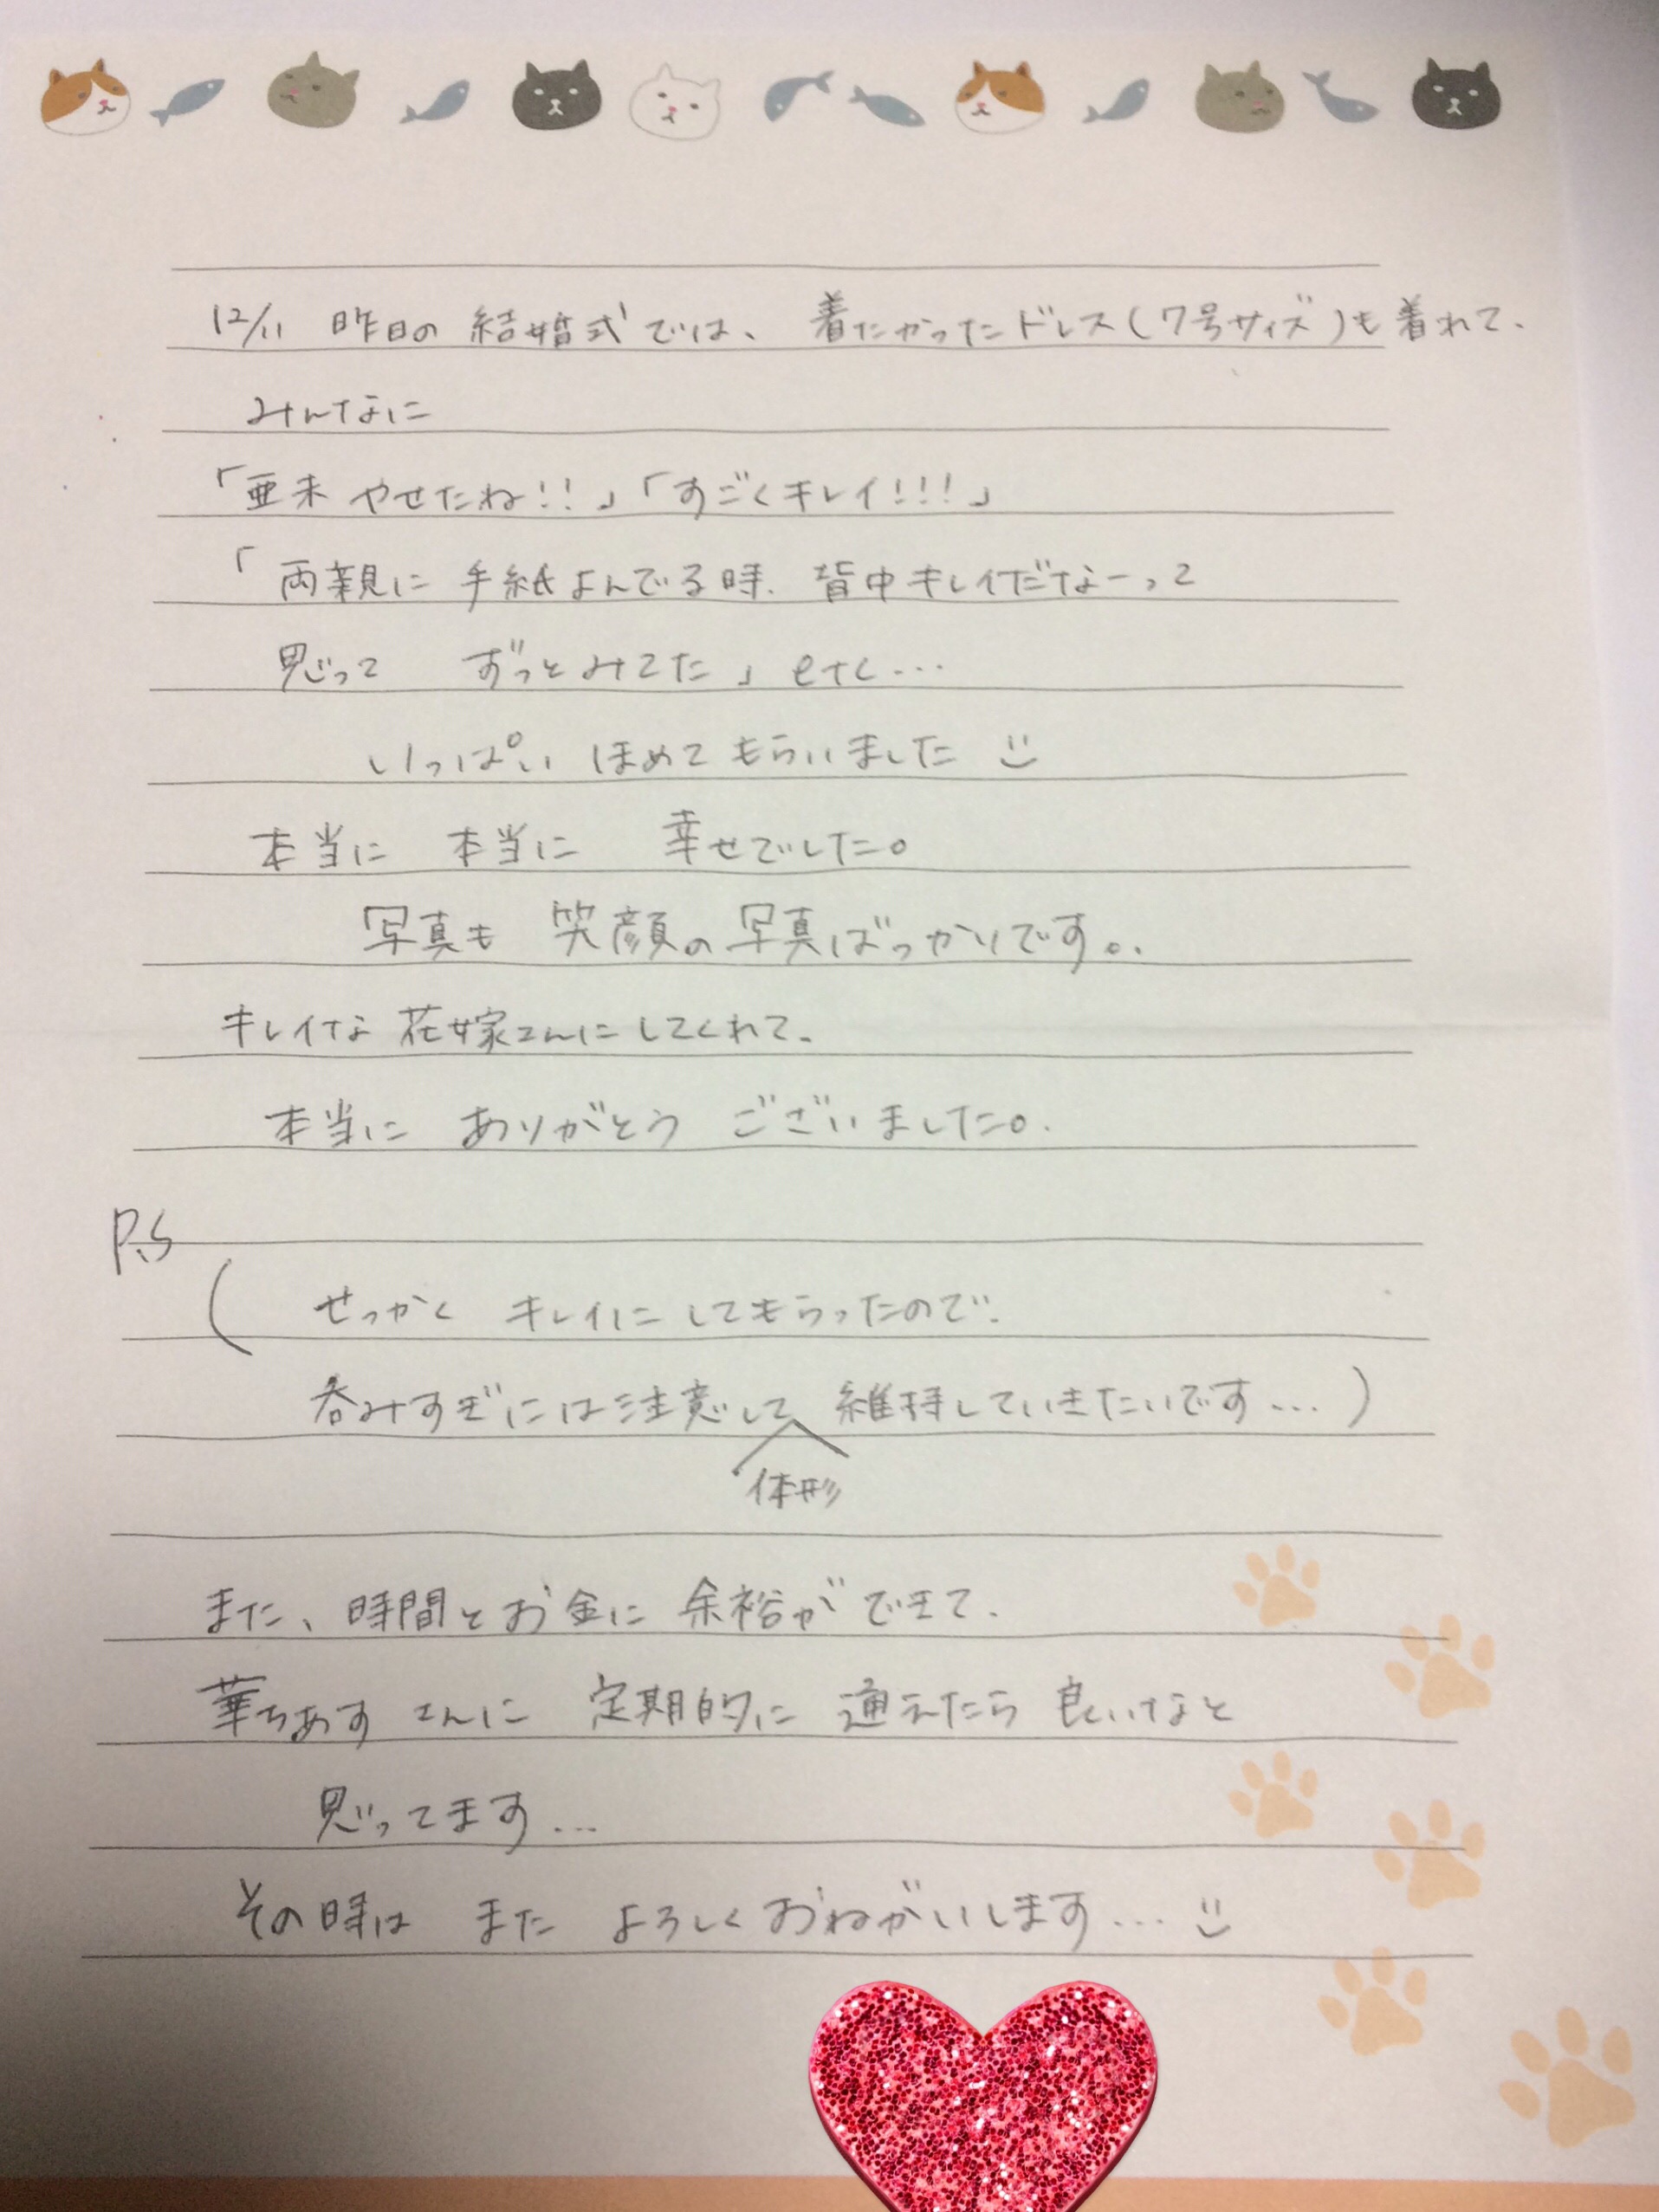 12/11 昨日の 結婚式では、着たかったドレス(7号サイズ)も着れて、
みんなに
「亜未 やせたね!!」「すごくキレイ!!!」
「両親に 手紙よんでる時、背中キレイだなーって
思って ずっとみてた」etc...
いっぱい ほめて もらいました
本当に 本当に 幸せでした。
写真も 笑顔の写真ばっかりです。
キレイな 花嫁さんにしてくれて、
本当に ありがとう ございました。
P.S
(せっかく キレイに してもらったので、
呑みすぎには注意して 体形 維持していきたいです...)
また、時間とお金に 余裕が できて、
華ちあす さんに 定期的に 通えたら 良いなと
思ってます...
その時は また よろしく おねがいします...